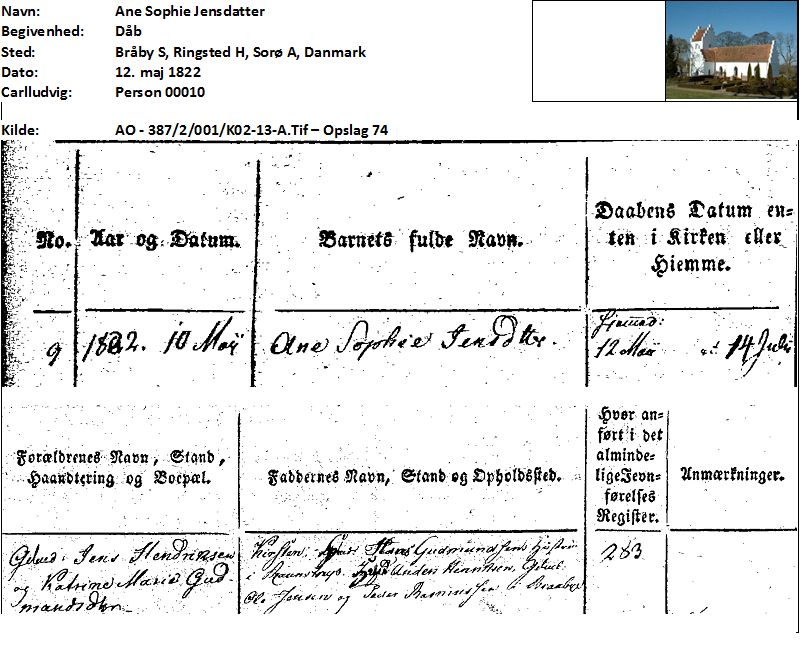 Navn: Ane Sophie Jensdatter
Begivenhed: Dåb
Sted: Bråby S, Ringsted H, Sorø A, Danmark
Dato: 12. maj 1822
Carlludvig: Person 00010
Kilde: AO - 387/2/001/K02-13-A.Tif – Opslag 74
No.
Aar og Datum.
Barnets fulde Navn.
Daabens Datum en=
ten i Kirken eller
Hiemme.
9
1822. 10 Maÿ
Ane Sophie Jensdttr.
Hjemmed:
12 Maÿ 14 Julÿ
Forældrenes Navn, Stand,
Haandtering og Boepæl.
Faddernes Navn, Stand og Opholdssted.
Hvor an=
ført i det
alminde=
lige Jevn=
førelses
Register.
Anmærkninger.
Gdmd: Jens Hendriksen
og Katrine Marie Gud=
mandsdtr
Kirsten, Hans Gudmundsens Hustrue
i Anders Hennimsen,
Ole Jensen og Peder Rasmussen i Braabye
283